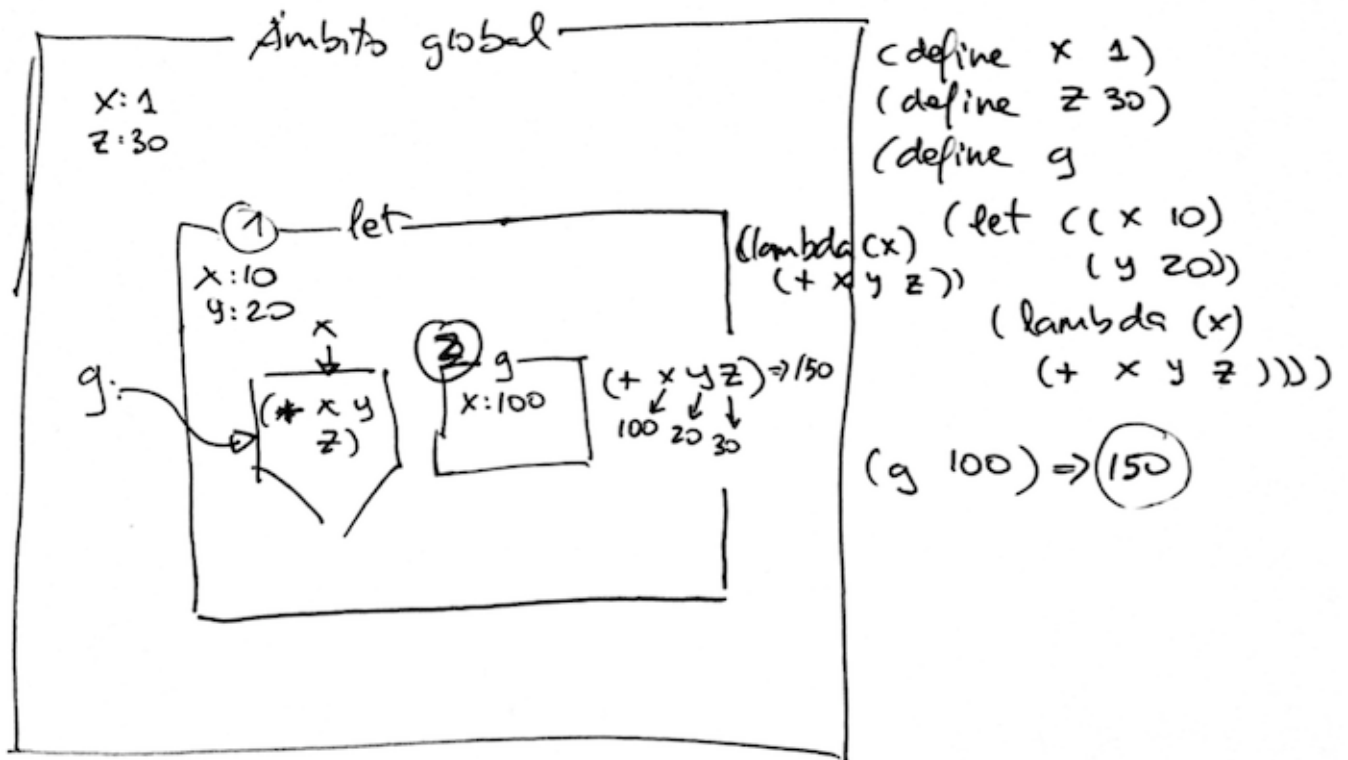 Ámbito global
x: 1
z: 30
1 let
x: 10
y: 20
(lambda (x)
(+ x y z))
g:
x
(+ x y
z)
2 g
x: 100
(+ x y z) ⇒ 150
100 20 30
(define x 1)
(define z 30)
(define g
(let ((x 10)
(y 20))
(lambda (x)
(+ x y z))))
(g 100) ⇒ 150